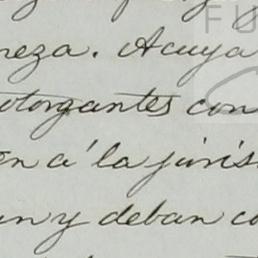 neza. Acuya
otorgantes con
en a' la juris
un y deban co